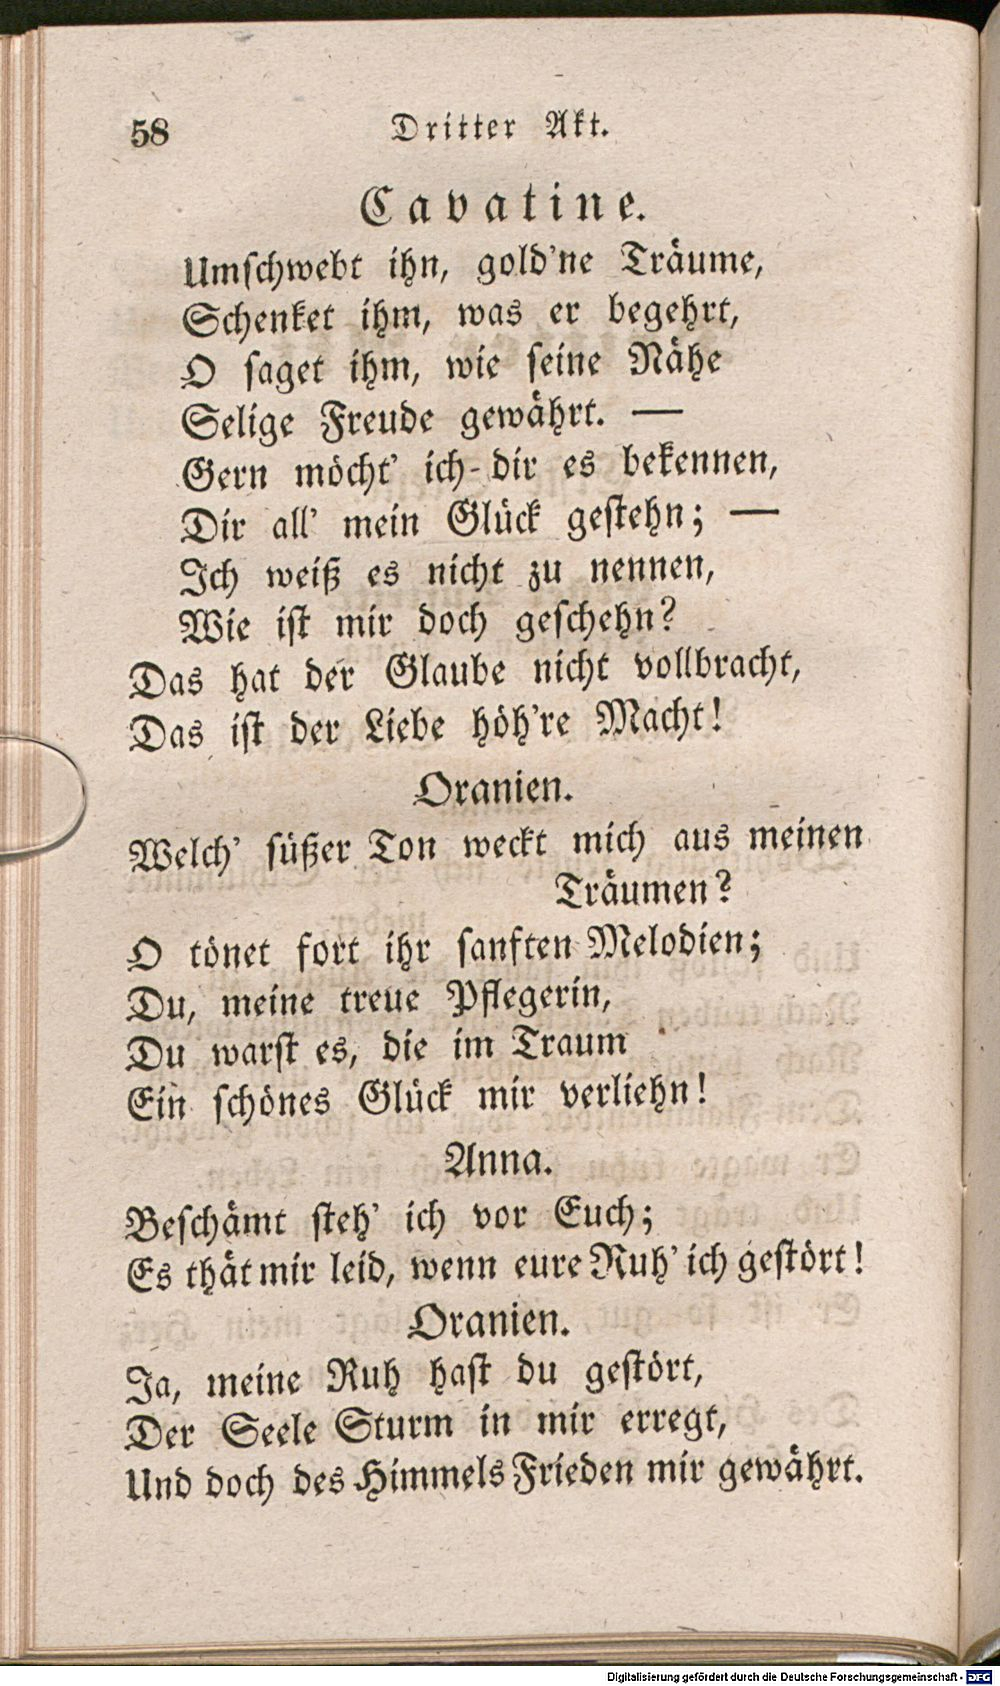 58
Dritter Akt.
Cavatine.
Umschwebt ihn, gold'ne Träume,
Schenket ihm, was er begehrt,
O saget ihm, wie seine Nähe
Selige Freude gewährt. —
Gern möcht' ich dir es bekennen,
Dir all' mein Glück gestehn; —
Ich weiß es nicht zu nennen,
Wie ist mir doch geschehn?
Das hat der Glaube nicht vollbracht,
Das ist der Liebe höh're Macht!
Oranien.
Welch' süßer Ton weckt mich aus meinen
Träumen?
O tönet fort ihr sanften Melodien;
Du, meine treue Pflegerin,
Du warst es, die im Traum
Ein schönes Glück mir verliehn!
Anna.
Beschämt steh' ich vor Euch;
Es thät mir leid, wenn eure Ruh' ich gestört!
Oranien.
Ja, meine Ruh hast du gestört,
Der Seele Sturm in mir erregt,
Und doch des Himmels Frieden mir gewährt.
Digitalisierung gefördert durch die Deutsche Forschungsgemeinschaft - DFG